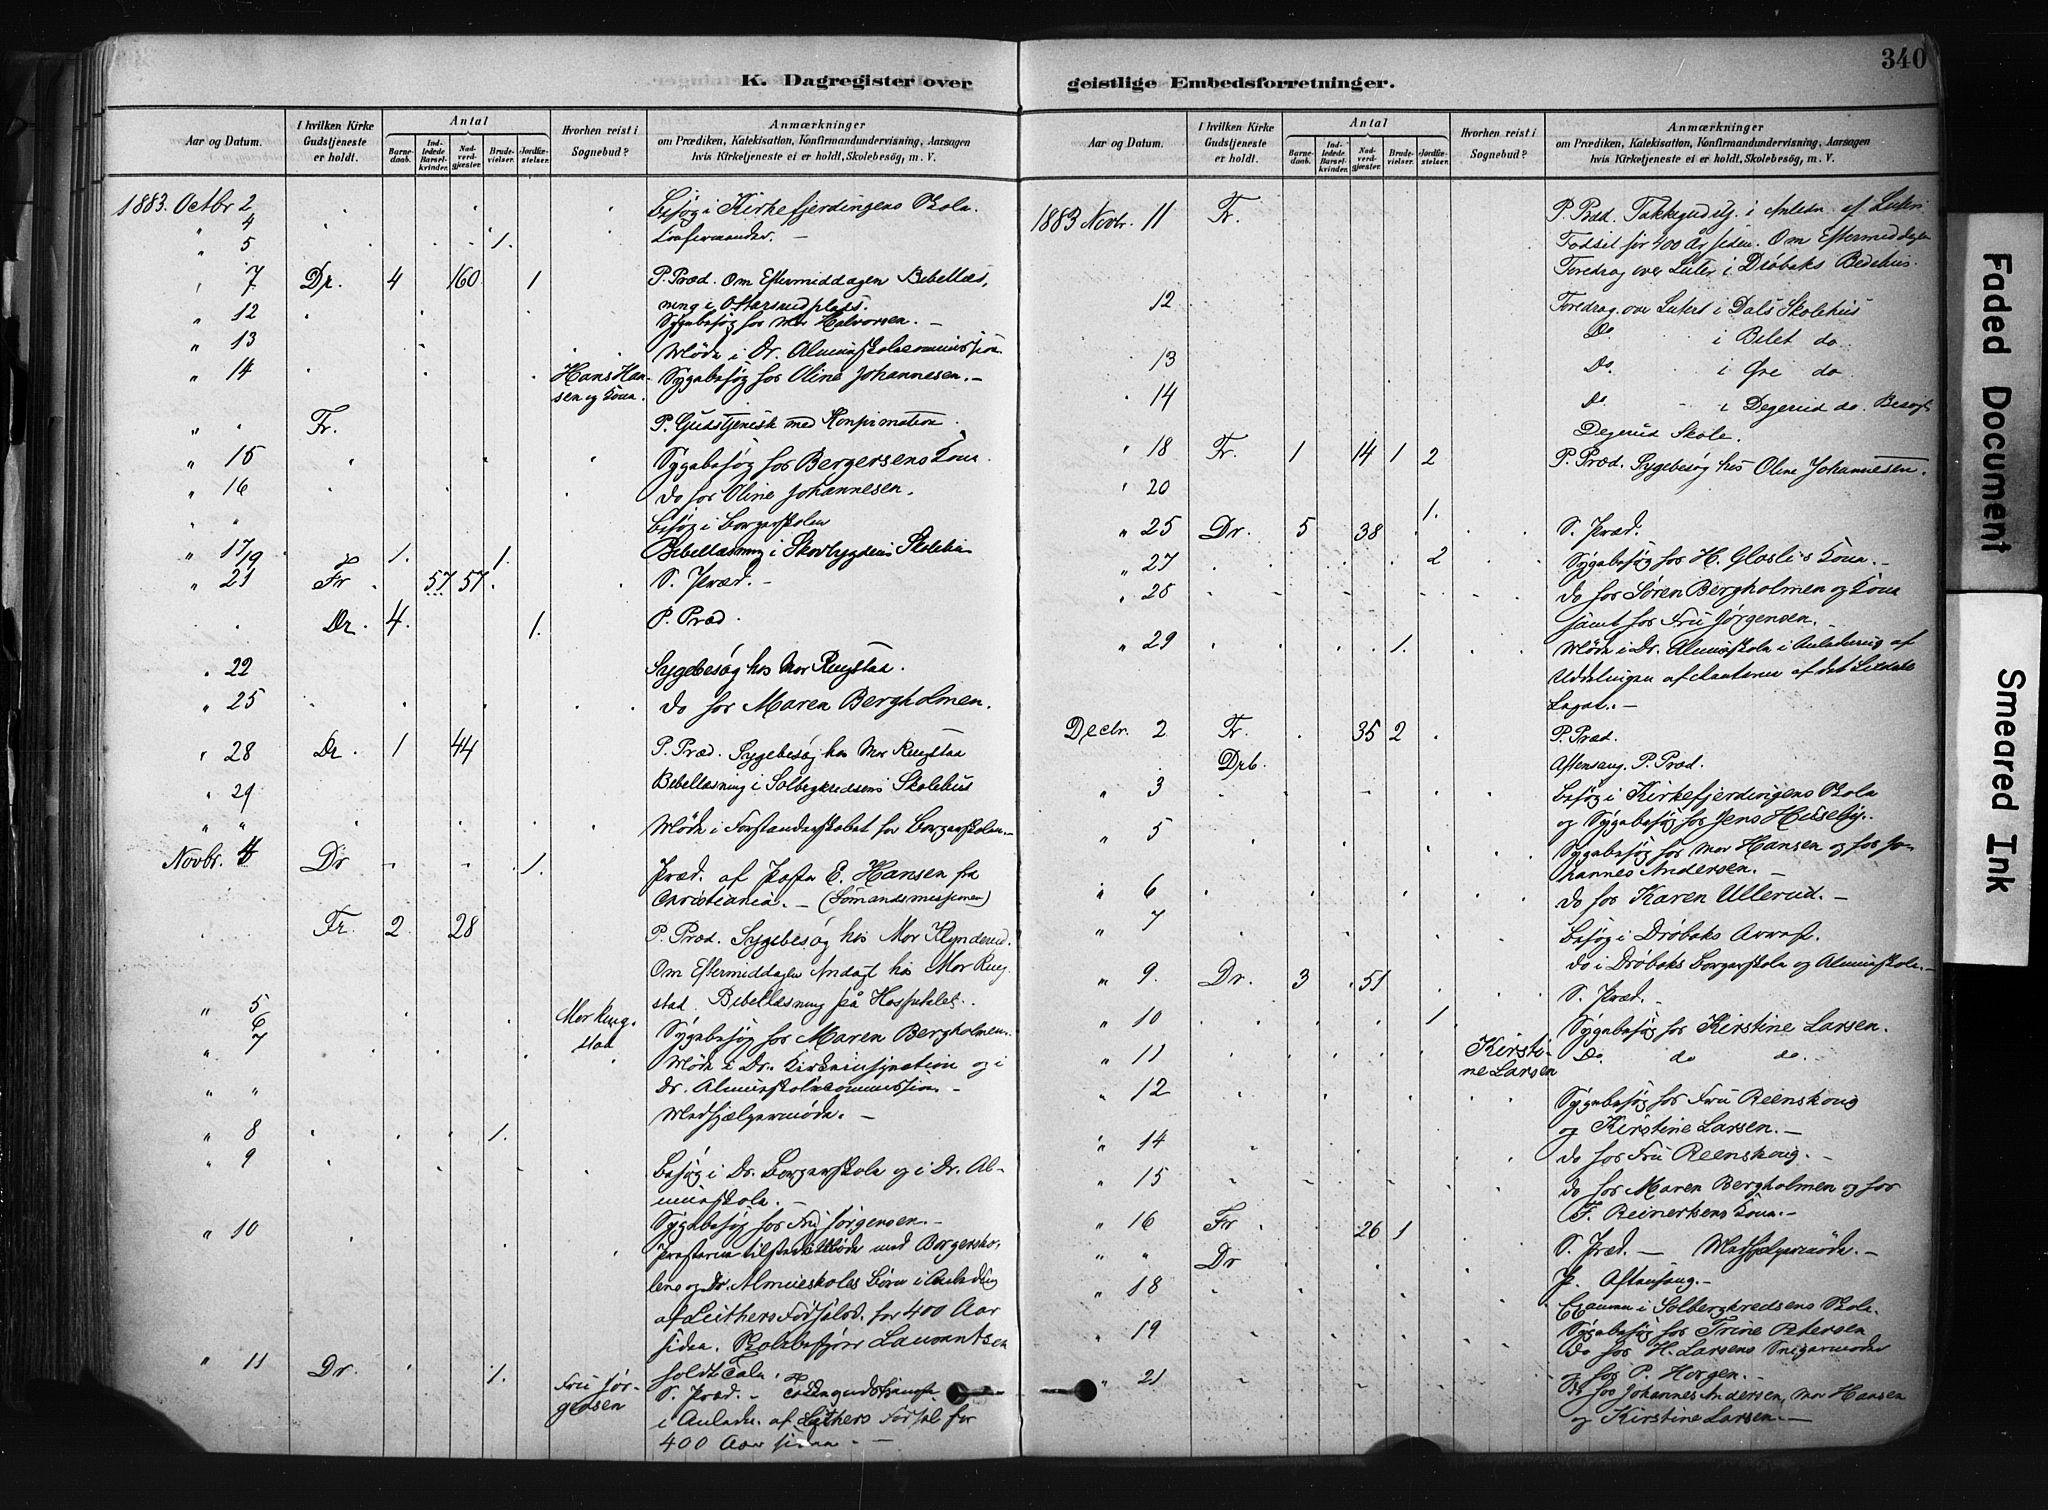 340
K. Dagregister over geistlige Embedsforretninger.
Aar og Datum.
I hvilken Kirke Gudstjeneste er holdt.
Antal
Barnedaab.
Indledede Barselkvinder.
Nadverdgjæster.
Brudevielser.
Jordfæstelser.
Hvorhen reist i Sognebud?
Anmærkninger
om Prædiken, Katekisation, Konfirmandundervisning, Aarsagen
hvis Kirketjeneste ei er holdt, Skolebesøg, m. V.
1883. Octbr 2 Besøg i Kirkefjerdingens Skole.
" 4 Confirmander. —
" 5 1.
" 7 Dr. 4 160 1 P. Præd. Om Eftermiddagen Bibellæs,
ning i Ottarsrudplads.
" 12 Sygebesøg hos Mor Halvorsen. —
" 13 Møde i Dr. Almueskolecommission
" 14 Hans Hansen og Kone Sygebesøg hos Oline Johannesen. —
" " Fr. P. Gudstjeneste med Konfirmation.
" 15 Sygebesøg hos Bergersens Kone
" 16 do hos Oline Johannesen.
" " Besøg i Borgerskolen
" 17/19 1. 1. Bibellæsning i Skovbygdens Skolehus
" 21 Fr 57 57 S. Præd. —
Dr. 4. 1. P. Præd.
" 22 Sygebesøg hos Mor Ringstad.
" 25 do hos Maren Bergholmen.
" 28 Dr. 1 44 P. Præd. Sygebesøg hos Mor Ringstad
" 29 Bibellæsning i Solbergkredsens Skolehus
" " Møde i Forstanderskabet for Borgerskolen. —
Novbr. 4 Dr 1. Præd. af Pastor E. Hansen fra
Christiania. — (Sømandsmissionen)
Fr. 2 28 P. Præd. Sygebesøg hos Mor Klynderud.
Om Eftermiddagen Andagt hos Mor Ring-
stad. Bibellæsning på Hospitalet.
" 5 Mor Ringstad Sygebesøg hos Maren Bergholmen.
6
" 7 Møde i Dr. Kirkeinspection og i
Dr. Almueskolecommission. —
" " Medhjælpermøde. —
" 8 1.
" 9 Besøg i Dr. Borgerskole og i Dr. Al-
mueskole. —
" 10 Sygebesøg hos Fru Jørgensen. —
Præsten tilstede Møde med Borgersko-
lens og Dr. Almueskoles Børn i Anledning
af Luthers Fødsel for 400 Aar
siden. Skolebestyrer Laurantsen
holdt Tale.
" 11 Dr. 1. Fru Jørgensen S. Præd. — Takkegudstjeneste
i Anledn. af Luthers Fødsel for
400 Aar siden. —
Aar og Datum.
I hvilken Kirke Gudstjeneste er holdt.
Antal
Barnedaab.
Indledede Barselkvinder.
Nadverdgjæster.
Brudevielser.
Jordfæstelser.
Hvorhen reist i Sognebud?
Anmærkninger
om Prædiken, Katekisation, Konfirmandundervisning, Aarsagen
hvis Kirketjeneste ei er holdt, Skolebesøg, m. V.
1883 Novbr. 11 Fr. P. Præd. Takkegudstj. i Anledn. af Luters
Fødsel for 400 År siden. Om Eftermiddagen
Foredrag over Luter i Drøbaks Bedehus.
12 Foredrag over Luter i Dals Skolehus
Do i Bilet do
13 Do. i Øre do
" 14 Do. i Degerud do. Besøgt
Degerud Skole.
" 18 Fr. 1 14 1 2 P. Præd. Sygebesøg hos Oline Johannesen.
" 20 1.
" 25 Dr. 5 38 S. Præd.
" 27 2 Sygebesøg hos H. Glosli's Kone. —
" 25 do hos Søren Bergholmen og Kone
samt hos Fru Jørgensen. —
" 29 1. Møde i Dr. Almueskole i Anledning af
Uddelingen af Renterne af det
Legat. —
Decbr. 2 Fr. 35 2 P. Præd.
Drb. Aftensang. P. Præd.
" 3 Besøg i Kirkefjerdingens Skole
og Sygebesøg hos Jens Huseby.
" 5 Sygebesøg hos Mor Hansen og hos Jo-
hannes Andersen. —
" 6 do hos Karen Ullerud. —
" 7 Besøg i Drøbaks Arrest.
do i Drøbaks Borgerskole og Almueskole. —
" 9. Dr. 3 51 S. Præd. —
" 10 1. Sygebesøg hos Kirstine Larsen.
" 11 Kirstine Larsen Do. do do.
" 12 Sygebesøg hos Fru Reenskoug
og Kirstine Larsen. —
" 14 do hos Fru Reenskoug. —
" 15 do hos Maren Bergholmen og hos
F. Reinertsens Kone. —
" 16 Fr 26 1 S. Præd. — Medhjælpermøde. —
" " Dr P. Aftensang. —
" 18 Examen i Solbergkredsens Skole.
" 19 Sygebesøg hos Trine Petersen
do hos H. Larsens Svigermoder
og hos P. Horgen. —
" 21 do hos Johannes Andersen, Mor Hansen
og Kirstine Larsen. —
Faded Document
Smeared Ink